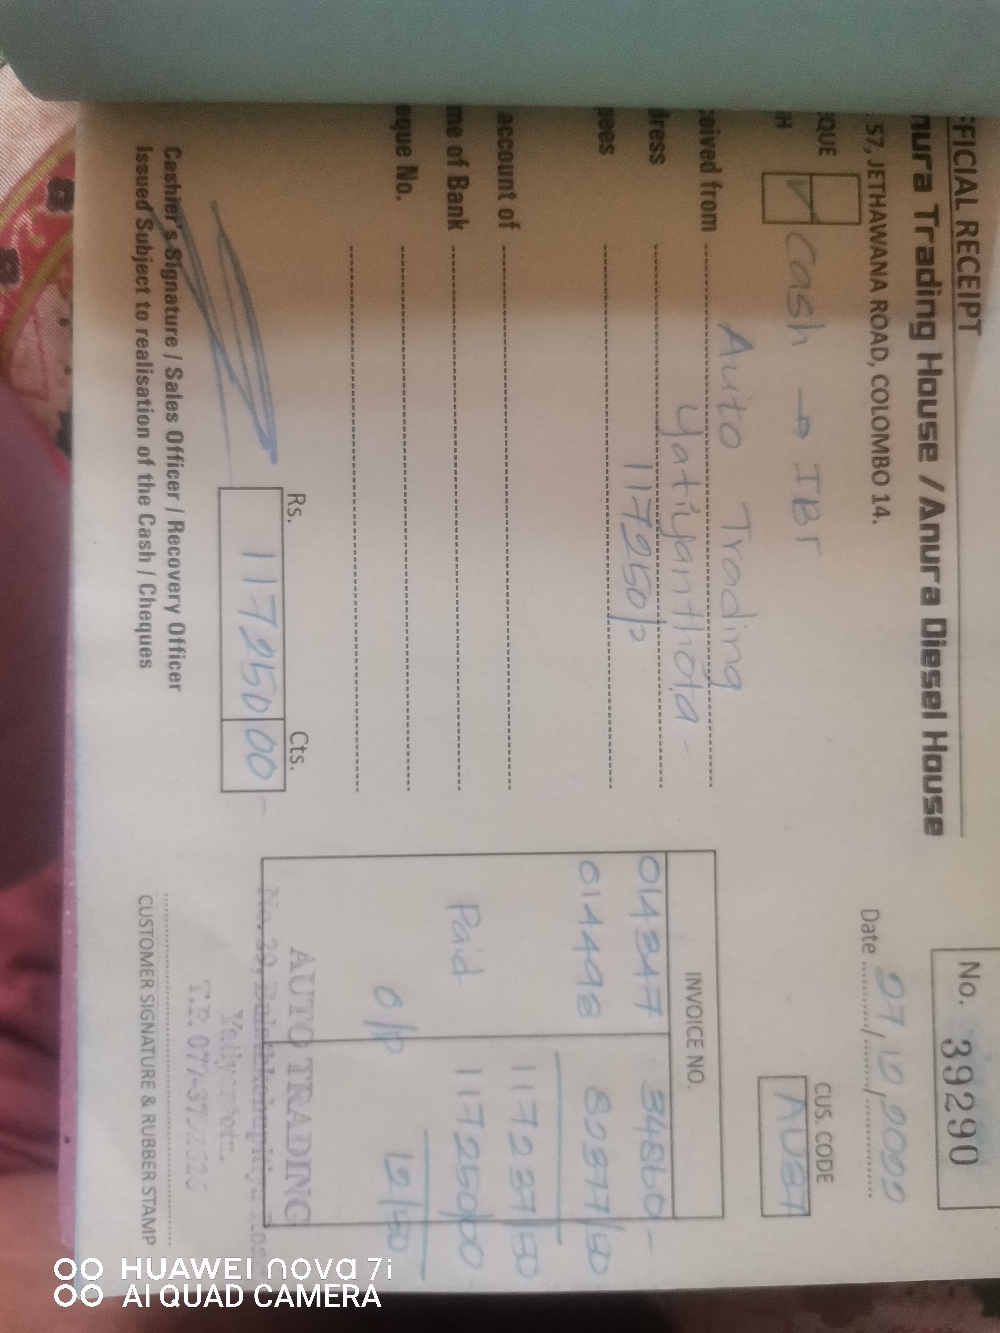 FFICIAL RECEIPT
No. 39290
nura Trading House / Anura Diesel House
57, JETHAWANA ROAD, COLOMBO 14.
Date
QUE
H
Cash → IBT
CUS. CODE
ceived from Auto Trading
dress Yatiyanthota -
pees 117250/=
account of
me of Bank
eque No.
INVOICE NO.
014347 34860 -
014498 82377/50
117237/50
Paid 117250/00
O/P 12/50
Rs. Cts.
117250 00
AUTO TRADING
Cashier's Signature / Sales Officer / Recovery Officer
Issued Subject to realisation of the Cash / Cheques
CUSTOMER SIGNATURE & RUBBER STAMP
HUAWEI nova 7i
AI QUAD CAMERA